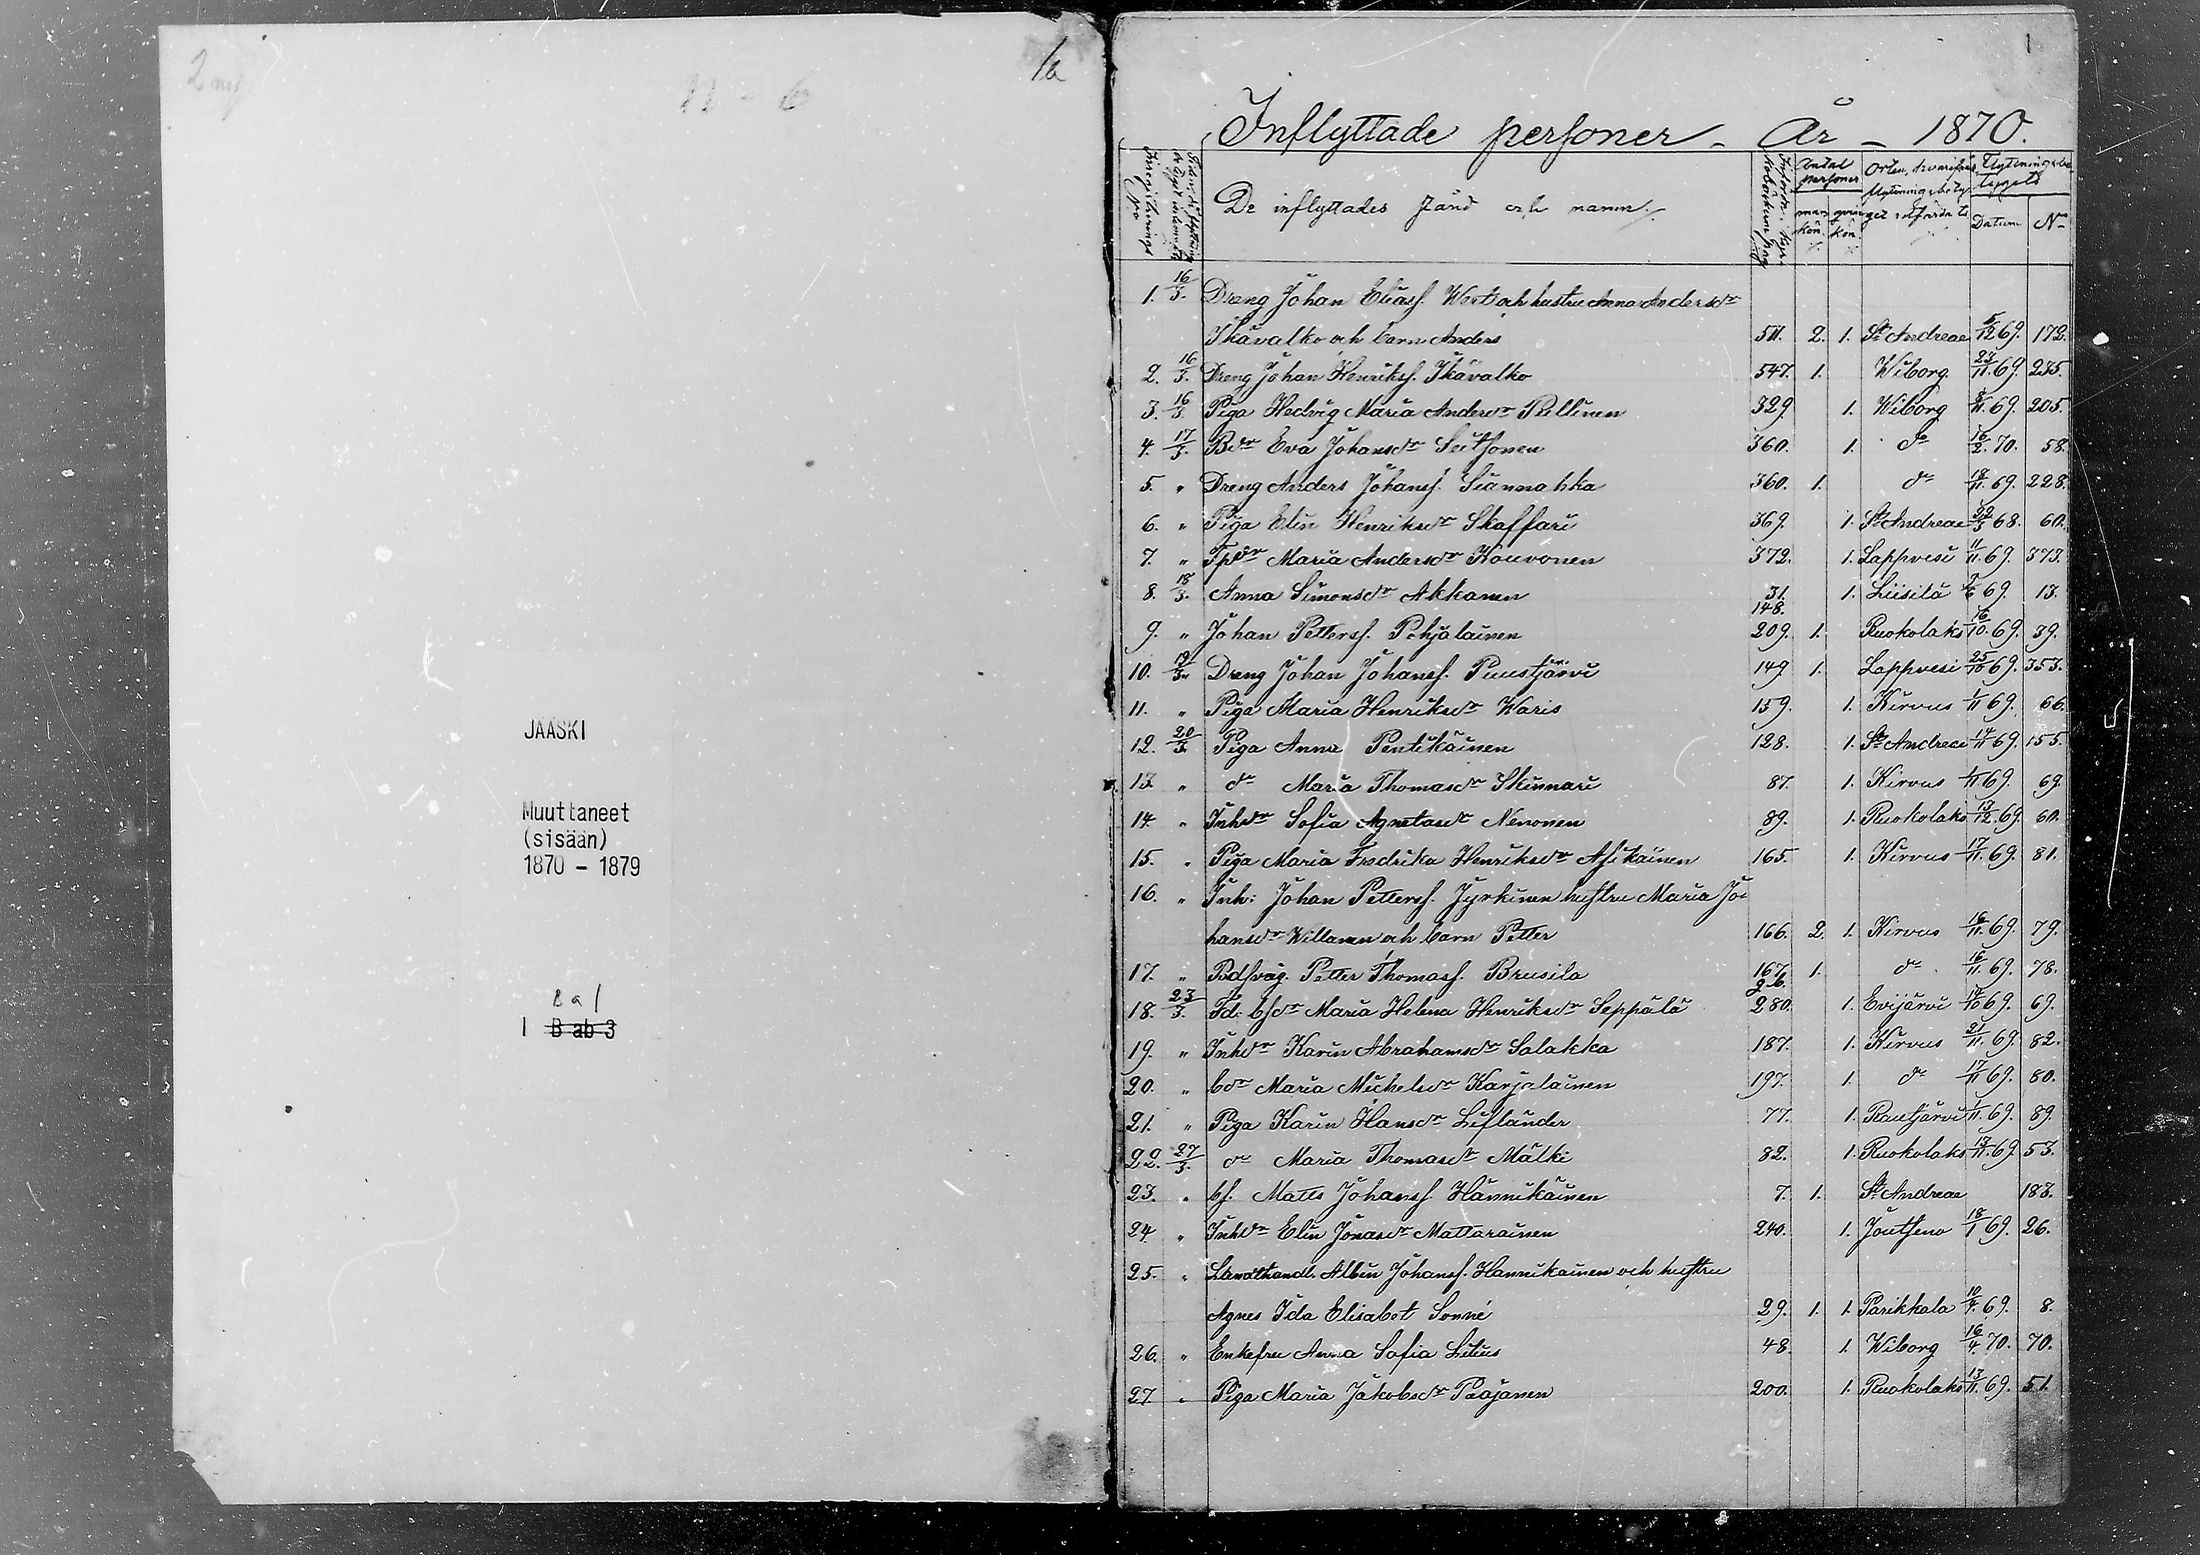 1a
JÄÄSKI
Muuttaneet
(sisään)
1870 - 1879
I B ab 3
1
Inflyttade personer - År - 1870.
De inflyttades stånd och namn.
Antal personer
man kön
qvin kön
Datum
No
1. 16/3. Dreng Johan Eliass. West och hustru Anna Andersdr
Ikävalko och barn Anders 511. 2. 1. St Andreae 5/12 69. 172.
2. 16/3. Dreng Johan Henrikss. Ikävalko 547. 1. Wiborg 23/11. 69. 235.
3. 16/3. Piga Hedvig Maria Andersdr Pullinen 329 1. Wiborg 8/11. 69. 205.
4. 17/3. Bdr Eva Johansdr Seitsonen 360. 1. do 16/2. 70. 58.
5. " Dreng Anders Johanss. Siannahka 360. 1. do 18/11. 69. 228.
6. " Piga Elin Henriksdr Skaffari 369. 1. St Andreae 22/3 68. 60.
7. " Tpdr Maria Andersdr Kouvonen 372. 1. Lappvesi 11/11. 69. 373.
8. 18/3. Anna Simonsdr Akkanen 31. 1. Liisilä 9/6 69. 13.
148.
9. " Johan Petterss. Pohjalainen 209. 1. Ruokolaks 16/10. 69. 39.
10. 19/3. Dreng Johan Johanss. Puustjärvi 149 1. Lappvesi 25/10 69. 353.
11. " Piga Maria Henriksdr Waris 159. 1. Kirvus 1/11 69. 66.
12. 20/3. Piga Anna Pentikäinen 128. 1. St Andreae 14/11 69. 155.
13. " do Maria Thomasdr Skinnari 87. 1. Kirvus 1/11 69. 69.
14. " Inhdr Sofia Agnetasdr Nenonen 89. 1. Ruokolaks 13/12. 69. 60.
15. " Piga Maria Fredrika Henriksdr Asikainen 165. 1. Kirvus 17/11. 69. 81.
16. " Inh: Johan Petterss. Jyrkinen hustru Maria Jo-
hansdr Willanen och barn Petter 166. 2. 1. Kirvus 16/11. 69. 79.
17. " Petter Thomass. Brusila 167. 1. do 16/11. 69. 78.
18. 23/3. Fd. bsdr Maria Helena Henriksdr Seppälä 280. 1. Evijärvi 14/10 69. 69.
19. " Inhdr Karin Abrahamsdr Salakka 187. 1. Kirvus 21/11. 69. 82.
20. " bdr Maria Michelsdr Karjalainen 197. 1. do 17/11 69. 80.
21. " Piga Karin Hansdr Lifländer 77. 1. Rautjärvi 1/11. 69. 89.
22. 27/3. do Maria Thomasdr Mälki 82. 1. Ruokolaks 14/11. 69 53.
23. " bs. Matts Johanss. Hännikäinen 7. 1. St Andreae 183.
24 " Inhdr Elin Jonasdr Mattarainen 240. 1. Joutseno 18/1 69. 26.
25. " Landthandl. Albin Johanss. Hannikainen och hustru
Agnes Ida Elisabet Sonné 29. 1. 1. Parikkala 10/4. 69. 8.
26. " Enkefru Anna Sofia Lilius 48. 1. Wiborg 16/4. 70. 70.
27. " Piga Maria Jakobsdr Paajanen 200. 1. Ruokolaks 13/11. 69. 51.